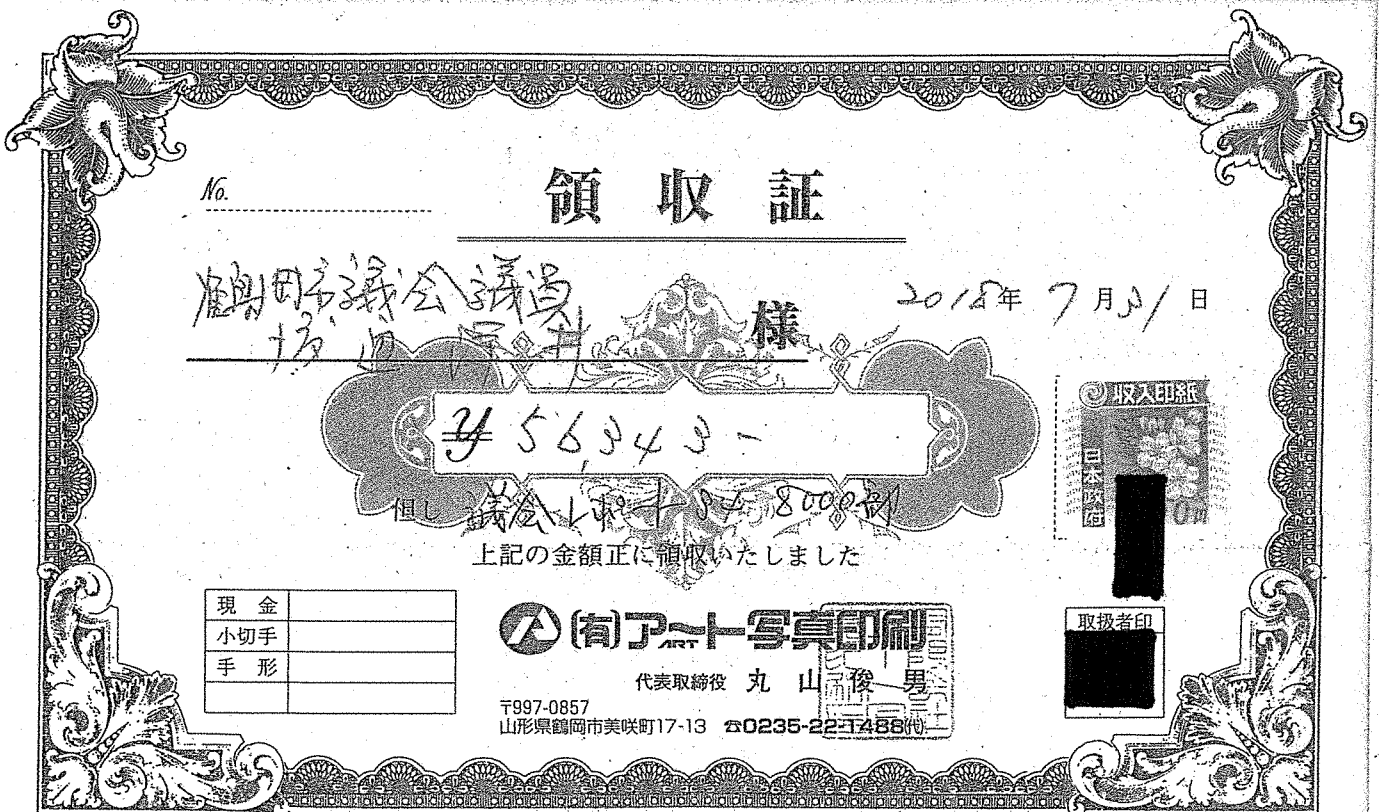 領収証
No.
鶴岡市議会議員
様
2018年 7月31日
収入印紙
日本政府
¥56,343-
但し 議会レポート 8000部
上記の金額正に領収いたしました
現金
小切手
手形
(有)アート写真印刷
ART
代表取締役 丸山俊男
〒997-0857
山形県鶴岡市美咲町17-13 ☎0235-22-1488(代)
取扱者印